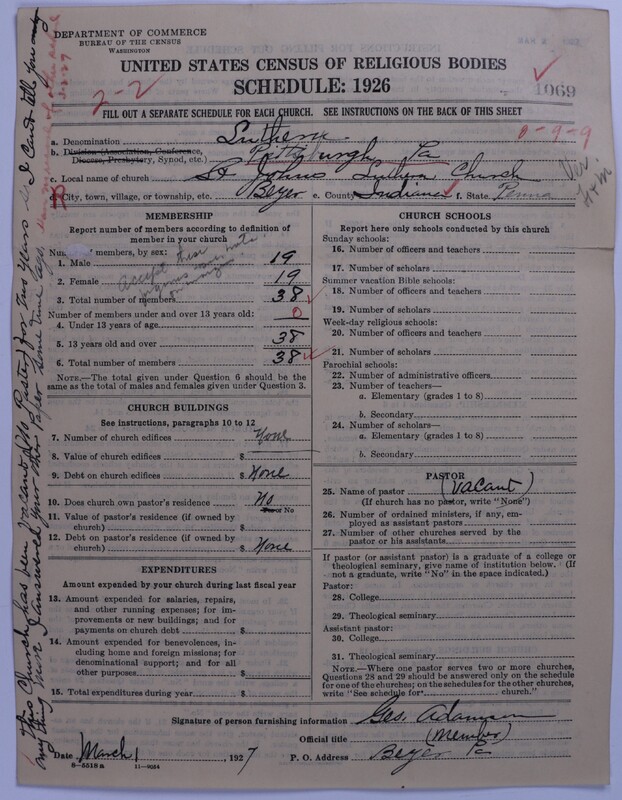 DEPARTMENT OF COMMERCE
BUREAU OF THE CENSUS
WASHINGTON
UNITED STATES CENSUS OF RELIGIOUS BODIES
SCHEDULE: 1926
2-2
1069
FILL OUT A SEPARATE SCHEDULE FOR EACH CHURCH. SEE INSTRUCTIONS ON THE BACK OF THIS SHEET
a. Denomination Luthern 0-9-9
b. Division (Association, Conference, Diocese, Presbytery, Synod, etc.) Pittsburgh Pa
c. Local name of church St Johns Luthern Church
d. City, town, village, or township, etc. Beyer e. County Indiana f. State Penna
Ver.
MEMBERSHIP
Report number of members according to definition of
member in your church
Number of members, by sex:
1. Male 19
2. Female 19
3. Total number of members 38
Number of members under and over 13 years old:
4. Under 13 years of age 0
5. 13 years old and over 38
6. Total number of members 38
accept these
NOTE.—The total given under Question 6 should be
same as the total of males and females given under Question 3.
CHURCH BUILDINGS
See instructions, paragraphs 10 to 12
7. Number of church edifices None
8. Value of church edifices $
9. Debt on church edifices $ None
10. Does church own pastor's residence No
Yes or No
11. Value of pastor's residence (if owned by
church) $
12. Debt on pastor's residence (if owned by
church) $ None
EXPENDITURES
Amount expended by your church during last fiscal year
13. Amount expended for salaries, repairs,
and other running expenses; for im-
provements or new buildings; and for
payments on church debt $
14. Amount expended for benevolences, in-
cluding home and foreign missions; for
denominational support; and for all
other purposes $
15. Total expenditures during year $
CHURCH SCHOOLS
Report here only schools conducted by this church
Sunday schools:
16. Number of officers and teachers
17. Number of scholars
Summer vacation Bible schools:
18. Number of officers and teachers
19. Number of scholars
Week-day religious schools:
20. Number of officers and teachers
21. Number of scholars
Parochial schools:
22. Number of administrative officers
23. Number of teachers—
a. Elementary (grades 1 to 8)
b. Secondary
24. Number of scholars—
a. Elementary (grades 1 to 8)
b. Secondary
PASTOR
25. Name of pastor (Vacant)
(If church has no pastor, write "None")
26. Number of ordained ministers, if any, em-
ployed as assistant pastors
27. Number of other churches served by the
pastor or his assistants
If pastor (or assistant pastor) is a graduate of a college or
theological seminary, give name of institution below. (If
not a graduate, write "No" in the space indicated.)
Pastor:
28. College
29. Theological seminary
Assistant pastor:
30. College
31. Theological seminary
NOTE.—Where one pastor serves two or more churches,
Questions 28 and 29 should be answered only on the schedule
for one of the churches; on the schedules for the other churches,
write "See schedule for church."
Signature of person furnishing information Geo. Adamson
Official title (Member)
Date March 1, 1927 P. O. Address Beyer Pa
8-5518a 11-9024
This Church has been Vacant (No Pastor) for two years so I Cant tell you only
any thing much I answered your other Paper some time ago.
3-2-27